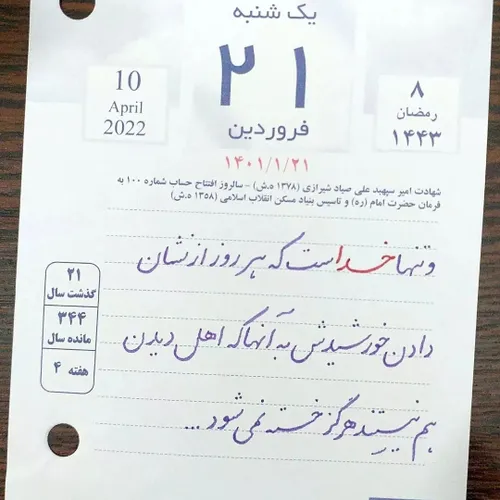 یک شنبه
۲۱
فروردین
۱۴۰۱/۱/۲۱
10
April
2022
۸
رمضان
۱۴۴۳
شهادت امیر سپهبد علی صیاد شیرازی (۱۳۷۸ ه.ش) - سالروز افتتاح حساب شماره ۱۰۰ به
فرمان حضرت امام (ره) و تاسیس بنیاد مسکن انقلاب اسلامی (۱۳۵۸ ه.ش)
و تنها خدا است که هر روز از نشان
دادن خورشیدش به آنها که اهل دیدن
هم نیستند هرگز خسته نمی شود ...
۲۱
گذشت سال
۳۴۴
مانده سال
هفته ۴